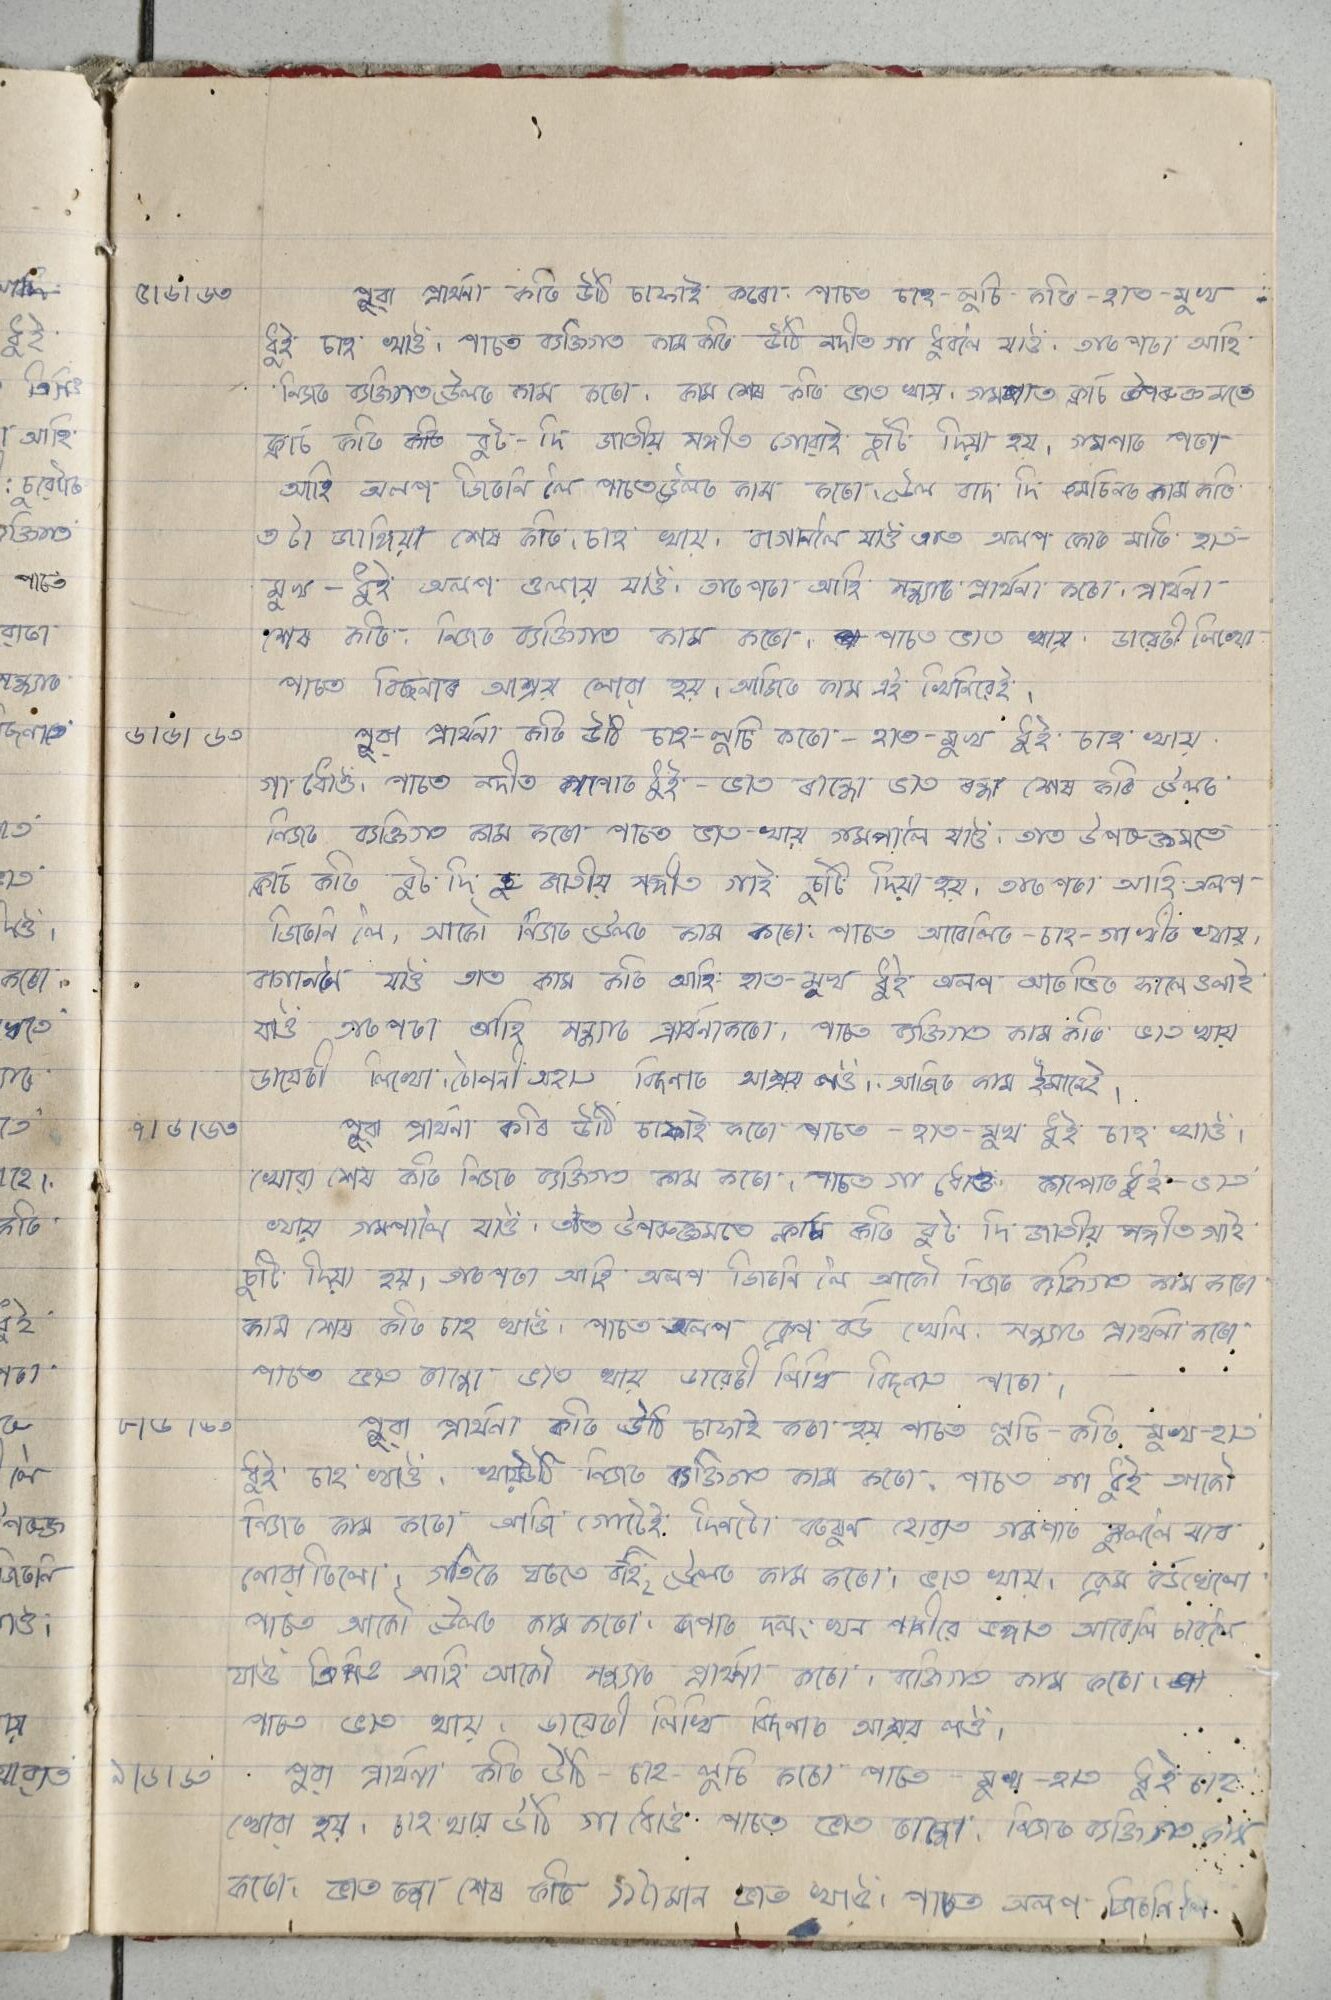 ৫।৬।৬৩ পুৱা প্ৰাৰ্থনা কৰি উঠি চাফাই কৰো. পাচত চাহ-লুচি কৰি-হাত-মুখ
ধুই চাহ খাওঁ. পাচত ব্যক্তিগত কাম কৰি উঠি নদীত গা ধুবলৈ যাওঁ. তাৰ পৰা আহি
নিজৰ ব্যক্তিগত উলৰ কাম কৰো. কাম শেষ কৰি ভাত খায়. ক্লাচ উপৰুক্তমতে
ক্লাচ কৰি বুট-দি জাতীয় সঙ্গীত গোৱাই চুটি দিয়া হয়, গমপাৰ পৰা
আহি অলপ জিৰনি লৈ পাচত উলৰ কাম কৰো. উল বাদ দি কাম কৰি
৩ টা জাঙ্গিয়া শেষ কৰি, চাহ খায়. বাগানলৈ যাওঁ তাত অলপ কোৰ মাৰি হাত-
মুখ-ধুই অলপ ওলায় যাওঁ. তাৰ পৰা আহি সন্ধ্যাৰ প্ৰাৰ্থনা কৰো. প্ৰাৰ্থনা
শেষ কৰি. নিজৰ ব্যক্তিগত কাম কৰো. পাচত ভাত খায়. ডায়েৰী লিখো
পাচত বিছনাৰ আশ্ৰয় লোৱা হয়, আজিৰ কাম এই খিনিয়েই.
৬।৬।৬৩ পুৱা প্ৰাৰ্থনা কৰি উঠি চাহ-লুচি কৰো-হাত-মুখ ধুই চাহ খায়.
গা ধোওঁ. পাচত নদীত কাপোৰ ধুই-ভাত ৰান্ধো ভাত ৰন্ধা শেষ কৰি উলৰ
নিজৰ ব্যক্তিগত কাম কৰো পাচত ভাত-খায় গমপালৈ যাওঁ. তাত উপৰুক্তমতে
ক্লাচ কৰি বুট দি জাতীয় সঙ্গীত গাই চুটি দিয়া হয়, তাৰ পৰা আহি অলপ-
জিৰনি লৈ, আকৌ নিজৰ উলৰ কাম কৰো. পাচত আবেলিৰ-চাহ-গাখীৰ খায়,
বাগানলৈ যাওঁ তাত কাম কৰি আহি হাত-মুখ ধুই অলপ ওলাই
যাওঁ তাৰ পৰা আহি সন্ধ্যাৰ প্ৰাৰ্থনা কৰো, পাচত ব্যক্তিগত কাম কৰি ভাত খায়
ডায়েৰী লিখো. টোপনী অহাত বিছনাৰ আশ্ৰয় লওঁ. আজিৰ কাম ইমানেই,
৭।৬।৬৩ পুৱা প্ৰাৰ্থনা কৰি উঠি চাফাই কৰো পাচত-হাত-মুখ ধুই চাহ খাওঁ.
খোৱা শেষ কৰি নিজৰ ব্যক্তিগত কাম কৰো, পাচত গা ধোওঁ কাপোৰ ধুই-ভাত
খায় গমপালৈ যাওঁ. তাত উপৰুক্তমতে ক্লাচ কৰি বুট দি জাতীয় সঙ্গীত গাই
চুটি দিয়া হয়, তাৰ পৰা আহি অলপ জিৰনি লৈ আকৌ নিজৰ ব্যক্তিগত কাম কৰো
কাম শেষ কৰি চাহ খাওঁ. পাচত অলপ বৰ্ড খেলি. সন্ধ্যাৰ প্ৰাৰ্থনা কৰো
পাচত ভাত ৰান্ধো ভাত খায় ডায়েৰী লিখি বিছনাত পৰো,
৮।৬।৬৩ পুৱা প্ৰাৰ্থনা কৰি উঠি চাফাই কৰা হয় পাচত লুচি-কৰি মুখ-হাত
ধুই চাহ খাওঁ. খায় উঠি নিজৰ ব্যক্তিগত কাম কৰো. পাচত গা ধুই আকৌ
নিজৰ কাম কৰো আজি গোটেই দিনটো বৰষুণ হোৱাত গমপাৰ স্কুললৈ যাব
নোৱাৰিলো, গতিকে ঘৰতে বহি উলৰ কাম কৰো, ভাত খায়. কেৰম বৰ্ড খেলো
পাচত আকৌ উলৰ কাম কৰো. আবেলি চাবলৈ
যাওঁ আহি আকৌ সন্ধ্যাৰ প্ৰাৰ্থনা কৰো, ব্যক্তিগত কাম কৰো.
পাচত ভাত খায়. ডায়েৰী লিখি বিছনাৰ আশ্ৰয় লওঁ,
৯।৬।৬৩ পুৱা প্ৰাৰ্থনা কৰি উঠি-চাহ-লুচি কৰো পাচত-মুখ-হাত ধুই চাহ
খোৱা হয়. চাহ খায় উঠি গা ধোওঁ. পাচত ভাত ৰান্ধো. নিজৰ ব্যক্তিগত কাম
কৰো. ভাত ৰন্ধা শেষ কৰি ভাত খাওঁ. পাচত অলপ জিৰনি লৈ